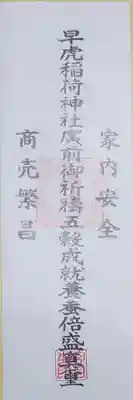 家内安全
早虎稲荷神社廣前御祈祷五穀成就養蚕倍盛真璽
商売繁昌